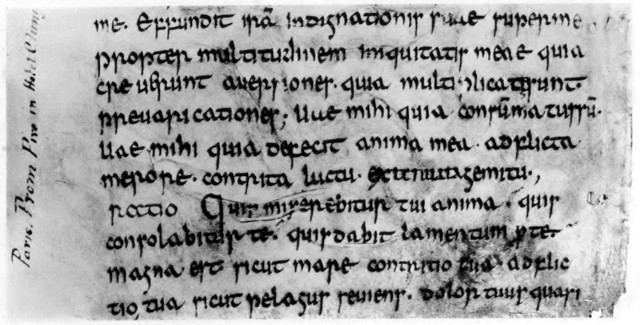 me. Effundit irā indignationis suae superme
propter multitudinem iniquitatis meae quia
creuerunt auersiones. quia multiplicatesunt.
preuaricationes; Uae mihi quia consūmatussū.
Uae mihi quia defecit anima mea. adflicta
merore. contrita luctu. extenuata gemitu.,
Quis miserebitur tui anima. quis
consolabitur te. quis dabit lamentum ꝓ te.
magna est sicut mare contritio tua. adflic
tio, tua sicut pelagus seuiens. dolor tuus quasi
Paris. in Hotel Cluny